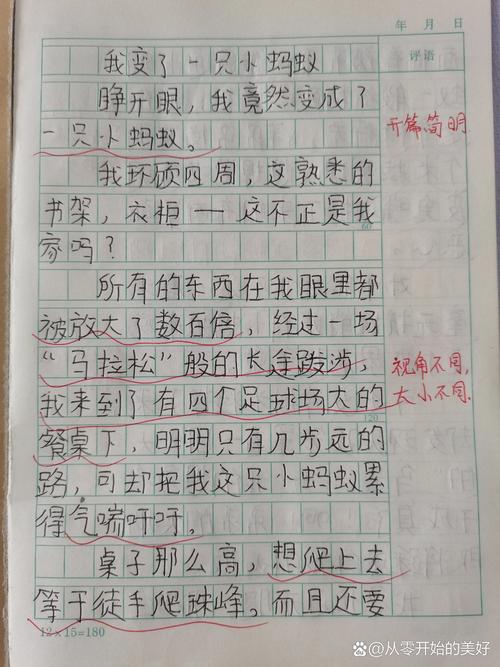 年 月 日
评语
我变了一只小蚂蚁
睁开眼，我竟然变成了
一只小蚂蚁。
开篇简明
我环顾四周，这熟悉的
书架，衣柜一这不正是我
家吗？
60
所有的东西在我眼里都
被放大了数百倍，经过一场
“马拉松”般的长途跋涉，
视角不同，
大小不同.
我来到了有四个足球场大的
120
餐桌下，明明只有几步远的
路，可却把我这只小蚂蚁累
得气喘吁吁。
桌子那么高，想爬上去
等于徒手爬珠峰。而且还要
12×15=180
@从零开始的美好